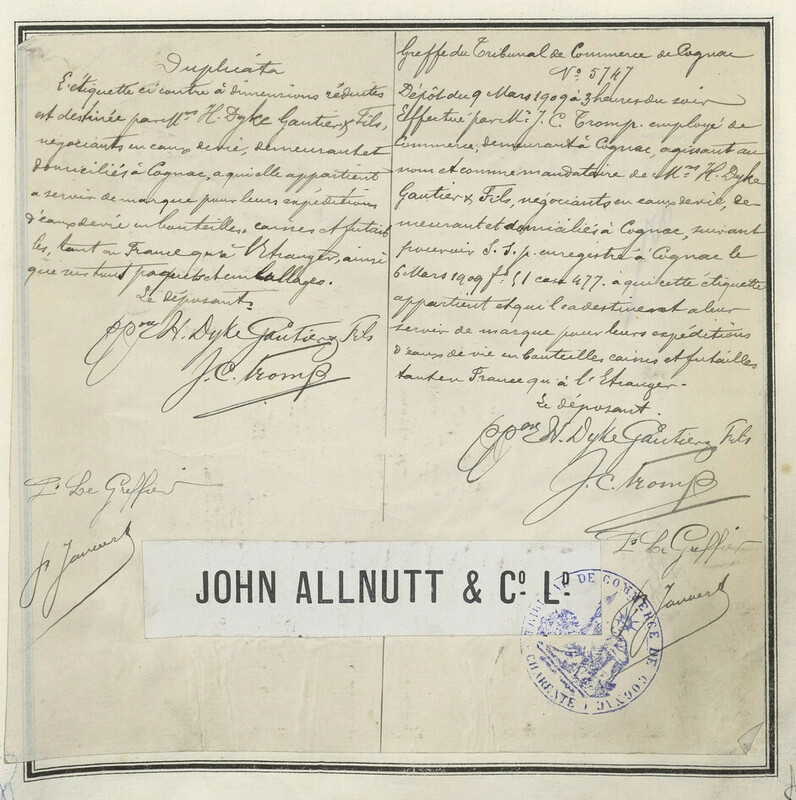 Duplicata
L'étiquette ci contre à dimensions réduites
est destinée par Mrs H. Dyke Gautier & Fils,
négociants en eaux de vie, demeurant et
domiciliés à Cognac, a qui elle appartient
a servir de marque pour leurs expéditions
d'eaux de vie en bouteilles, caisses et futail
les, tant en France qu'à l'Etranger, ainsi
que sur tous paquets et emballages.
Le déposant
ppon H. Dyke Gautier & Fils
J. C. Tromp
Pr Le Greffier
Greffe du Tribunal de Commerce de Cognac
No 5747
Dépôt du 9 Mars 1909 à 3 heures du soir
Effectué par Mr J. C. Tromp, employé de
Commerce, demeurant à Cognac, agissant au
nom et comme mandataire de Mrs H. Dyke
Gautier & Fils, négociants en eaux de vie, de-
meurant et domiciliés à Cognac, suivant
pouvoir S. S. p. enregistré à Cognac le
6 Mars 1909 fo 51 case 477. à qui cette étiquette
appartient et qu'il a destineront a leur
servir de marque pour leurs expéditions
d'eaux de vie en bouteilles caisses et futailles
tant en France qu'à l'Etranger.
Le déposant.
ppon H. Dyke Gautier & Fils
J. C. Tromp
Pr Le Greffier
JOHN ALLNUTT & Co. LD.
TRIBUNAL DE COMMERCE DE COGNAC
(CHARENTE)